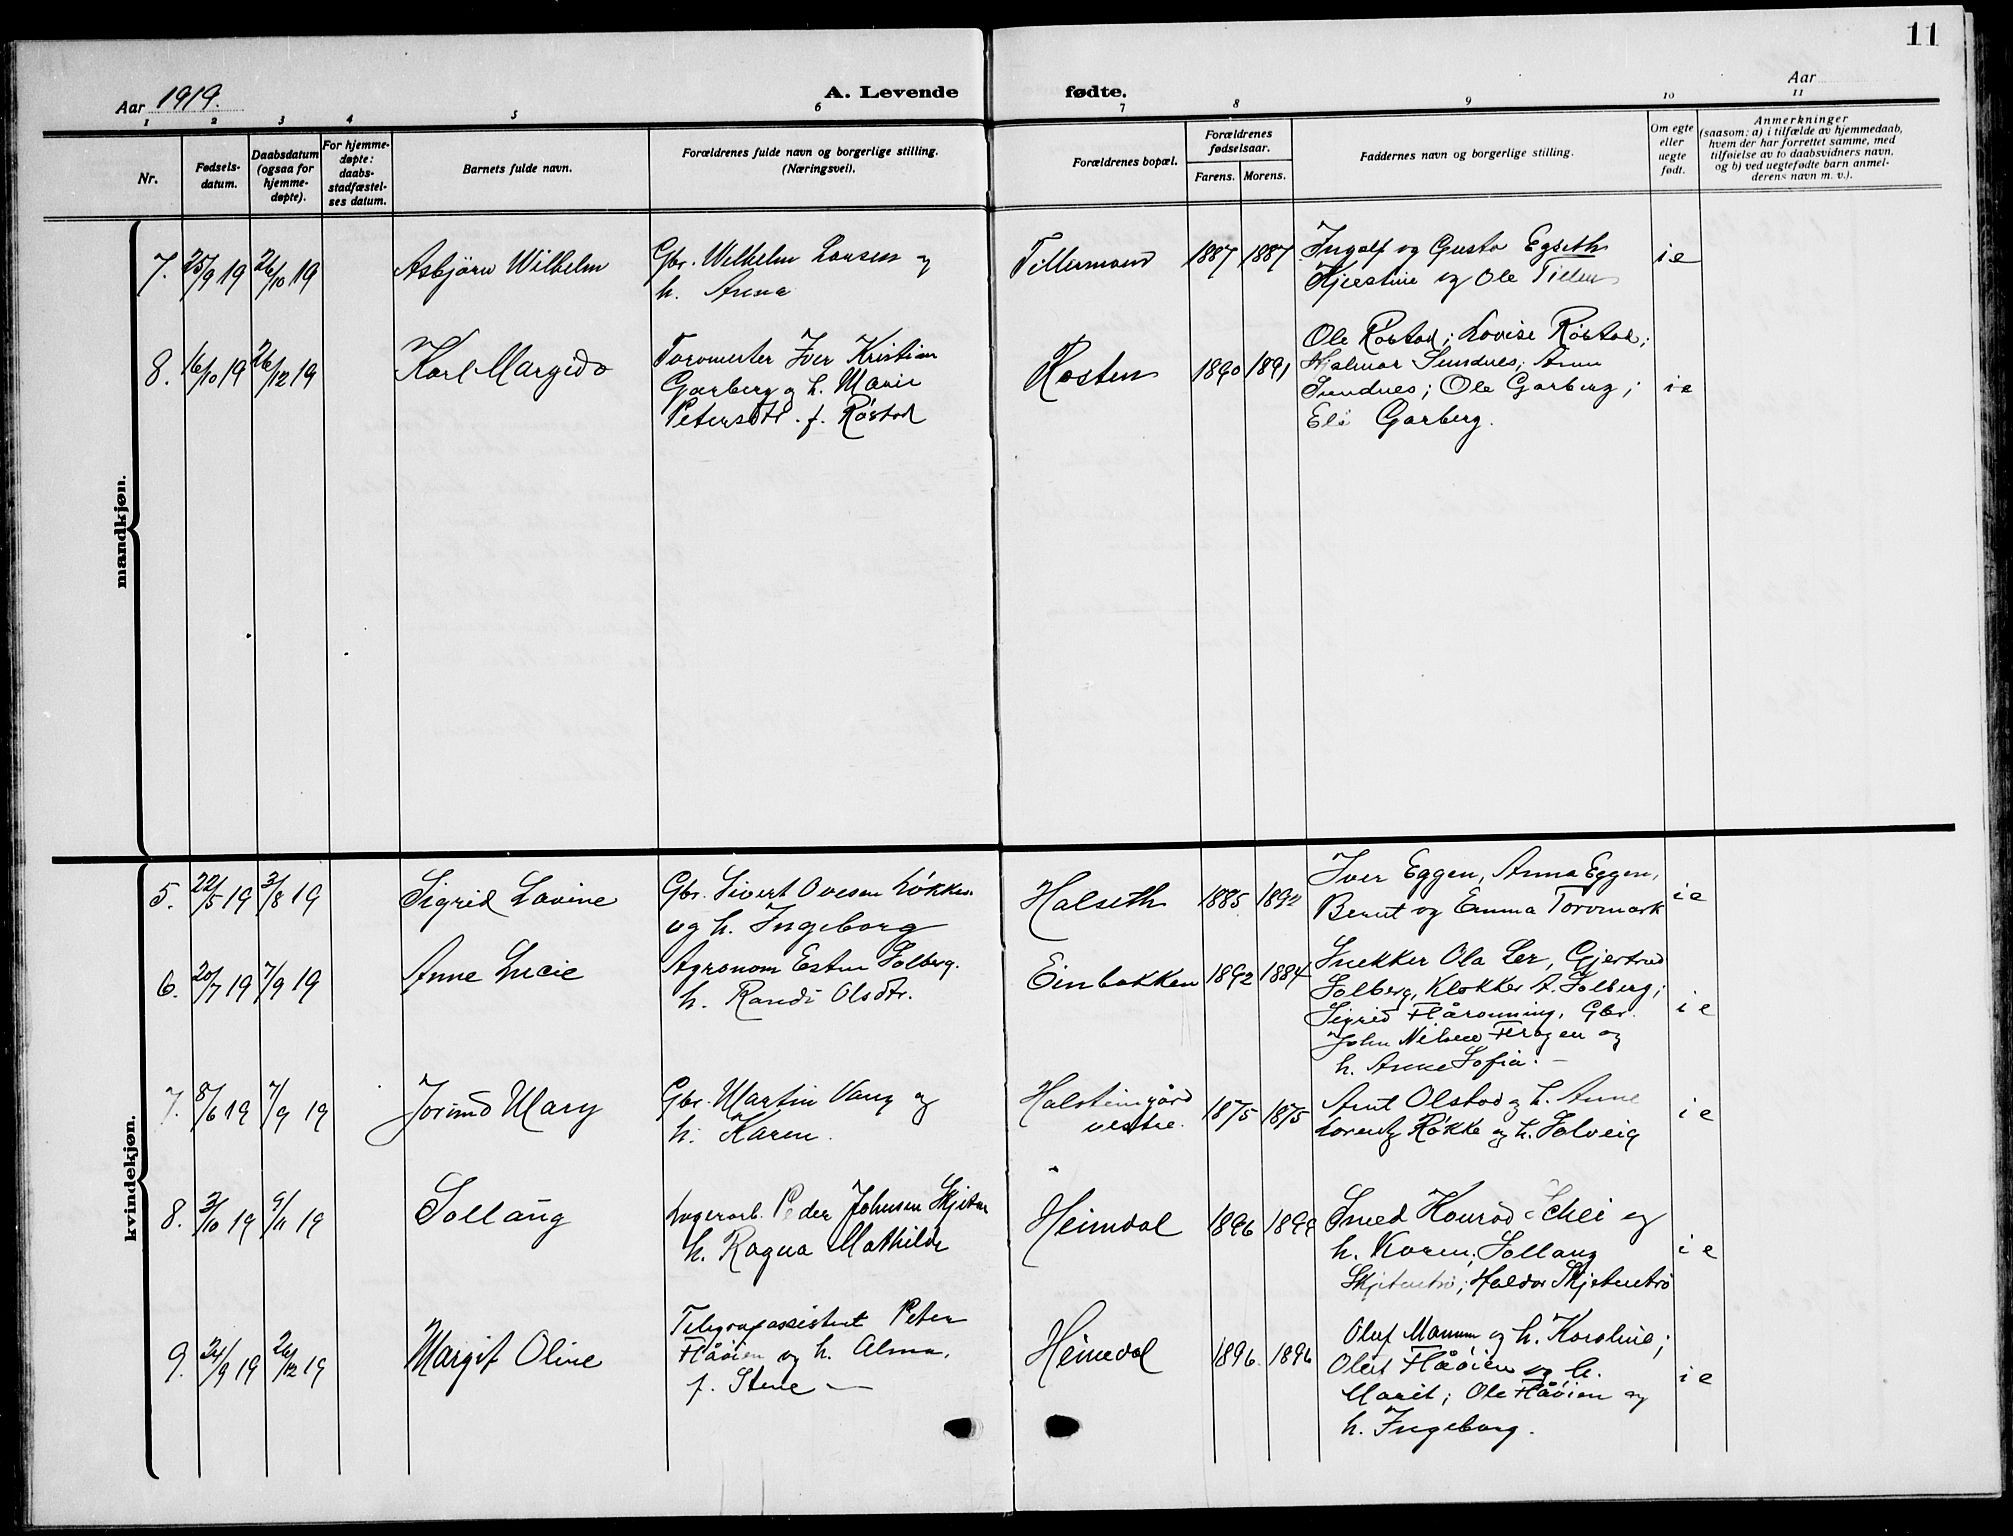 11
Aar 1919.
A. Levende fødte.
Aar
1 2 3 4 5 6 7 8 9 10 11
Nr.
Fødsels-
datum.
Daabsdatum
(ogsaa for
hjemme-
døpte).
For hjemme-
døpte:
daabs-
stadfæstel-
ses datum.
Barnets fulde navn.
Forældrenes fulde navn og borgerlige stilling.
(Næringsvei).
Forældrenes bopæl.
Forældrenes
fødselsaar.
Farens. Morens.
Faddernes navn og borgerlige stilling.
Om egte
eller
uegte
født.
Anmerkninger
(saasom: a) i tilfælde av hjemmedaab,
hvem der har forrettet samme, med
tilføielse av to daabsvidners navn,
og b) ved uegtefødte barn anmel-
derens navn m. v.).
mandkjøn.
7. 25/9 19 26/10 19
Asbjörn Wilhelm
Gbr. Wilhelm Larsen og
h. Anna
1887 1887
Ingolf og Gusta Egseth
Kjerstine og Ole Tiller
i e
8. 16/10 19 26/12 19
Karl Margido
Torvmester Iver Kristian
Garberg og h. Marie
Petersdtr. f. Røstad
Rosten
1890 1891
Ole Røstad; Lovise Røstad;
Hjalmar Sundnes; Anna
Sundnes; Ole Garberg;
Eli Garberg.
i e
kvindekjøn.
5. 22/5 19 3/8 19
Sigrid Lovine
Gbr. Sivert Ovesen Løkken
og h. Ingeborg
Halseth
1885 1892
Iver Eggen, Anna Eggen,
Bernt og Emma Torvmark
i e
6. 20/7 19 7/9 19
Anne Lucie
Agronom Esten Solberg.
h. Randi Olsdtr.
Einbakken
1892 1884
Snekker Ola Ler, Gjertrud
Solberg, Klokker A. Solberg;
Sigrid Flåronning, Gbr.
John Nilsen Flrogen og
h. Anne Sofia. –
i e
7. 8/6 19 7/9 19
Jorund Mary
Gbr. Martin Vang og
h. Karen.
Halsteingård
vestre.
1875 1875
Arnt Olstad og h. Anne
Lorentz Røkke og h. Solveig
i e
8. 3/10 19 9/11 19
Sollaug
Lagerarb. Peder Johnsen
h. Ragna Mathilde
Heimdal
1896 1899
Smed Konrad Schei og
h. Karen; Sollaug
Skjetnetrø; Haldor Skjetnetrø
i e
9. 24/9 19 26/12 19
Margit Oline
Telegrafassistent Peter
Flåøien og h. Alma,
f. Stene –
Heimdal
1896 1896
Oluf Manum og h. Karoline;
Olaf Flåøien og h.
Marit; Ole Flåøien og
h. Ingeborg.
i e